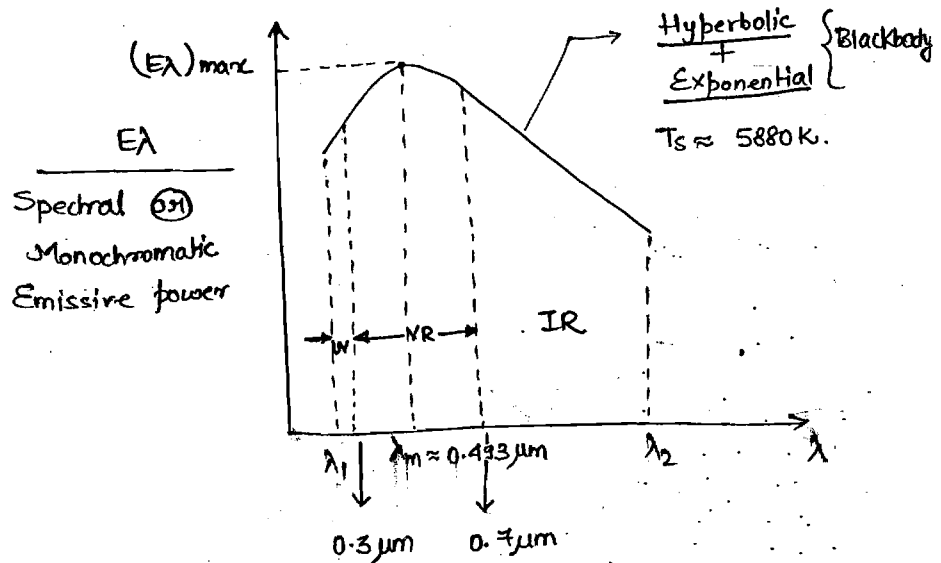 (Eλ)max
Hyperbolic
+
Exponential
Blackbody
Ts ≈ 5880K.
Eλ
Spectral or
Monochromatic
Emissive power
UV
VR
IR
λ1
λm ≈ 0.493 μm
λ2
λ
0.3 μm
0.7 μm